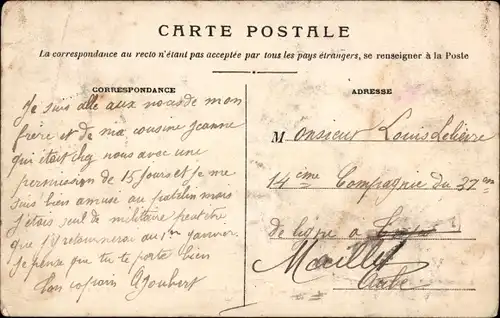 CARTE POSTALE
La correspondance au recto n'étant pas acceptée par tous les pays étrangers, se renseigner à la Poste
CORRESPONDANCE
Je suis allé aux noces de mon
frère et de ma cousine Jeanne
qui était chez nous avec une
permission de 15 jours et je me
suis bien amusé au patelin mais
j'étais seul de militaire peut etre
que j'y retournerai au 1er janvier
je pense que tu te porte bien
ton copain Joubert
ADRESSE
Monsieur Louis Lelièvre
14ème Compagnie du 37em
de ligne a
Mailly
Aube